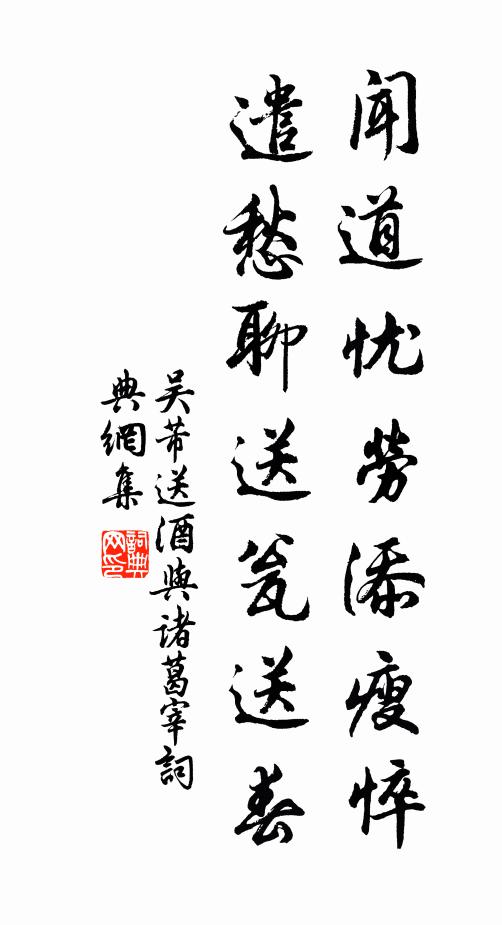 闻道忧劳添瘦悴
遣愁聊送瓮送春
吴芾送酒與诸葛宰詞
典網集
詞典
网印